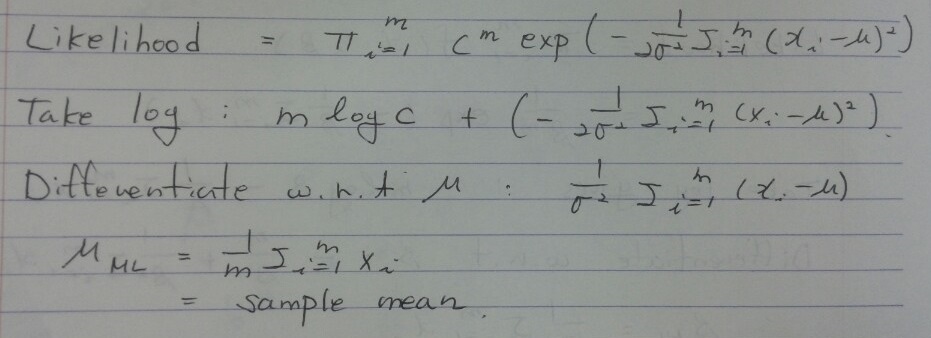 Likelihood = π_{i=1}^{m} C^m exp(-\frac{1}{2σ²} Σ_{i=1}^{m} (x_i-μ)²)
Take log : m log C + (-\frac{1}{2σ²} Σ_{i=1}^{m} (x_i-μ)²).
Differentiate w.r.t μ : \frac{1}{σ²} Σ_{i=1}^{m} (x_i-μ)
μ_{ML} = \frac{1}{m} Σ_{i=1}^{m} x_i
= sample mean.